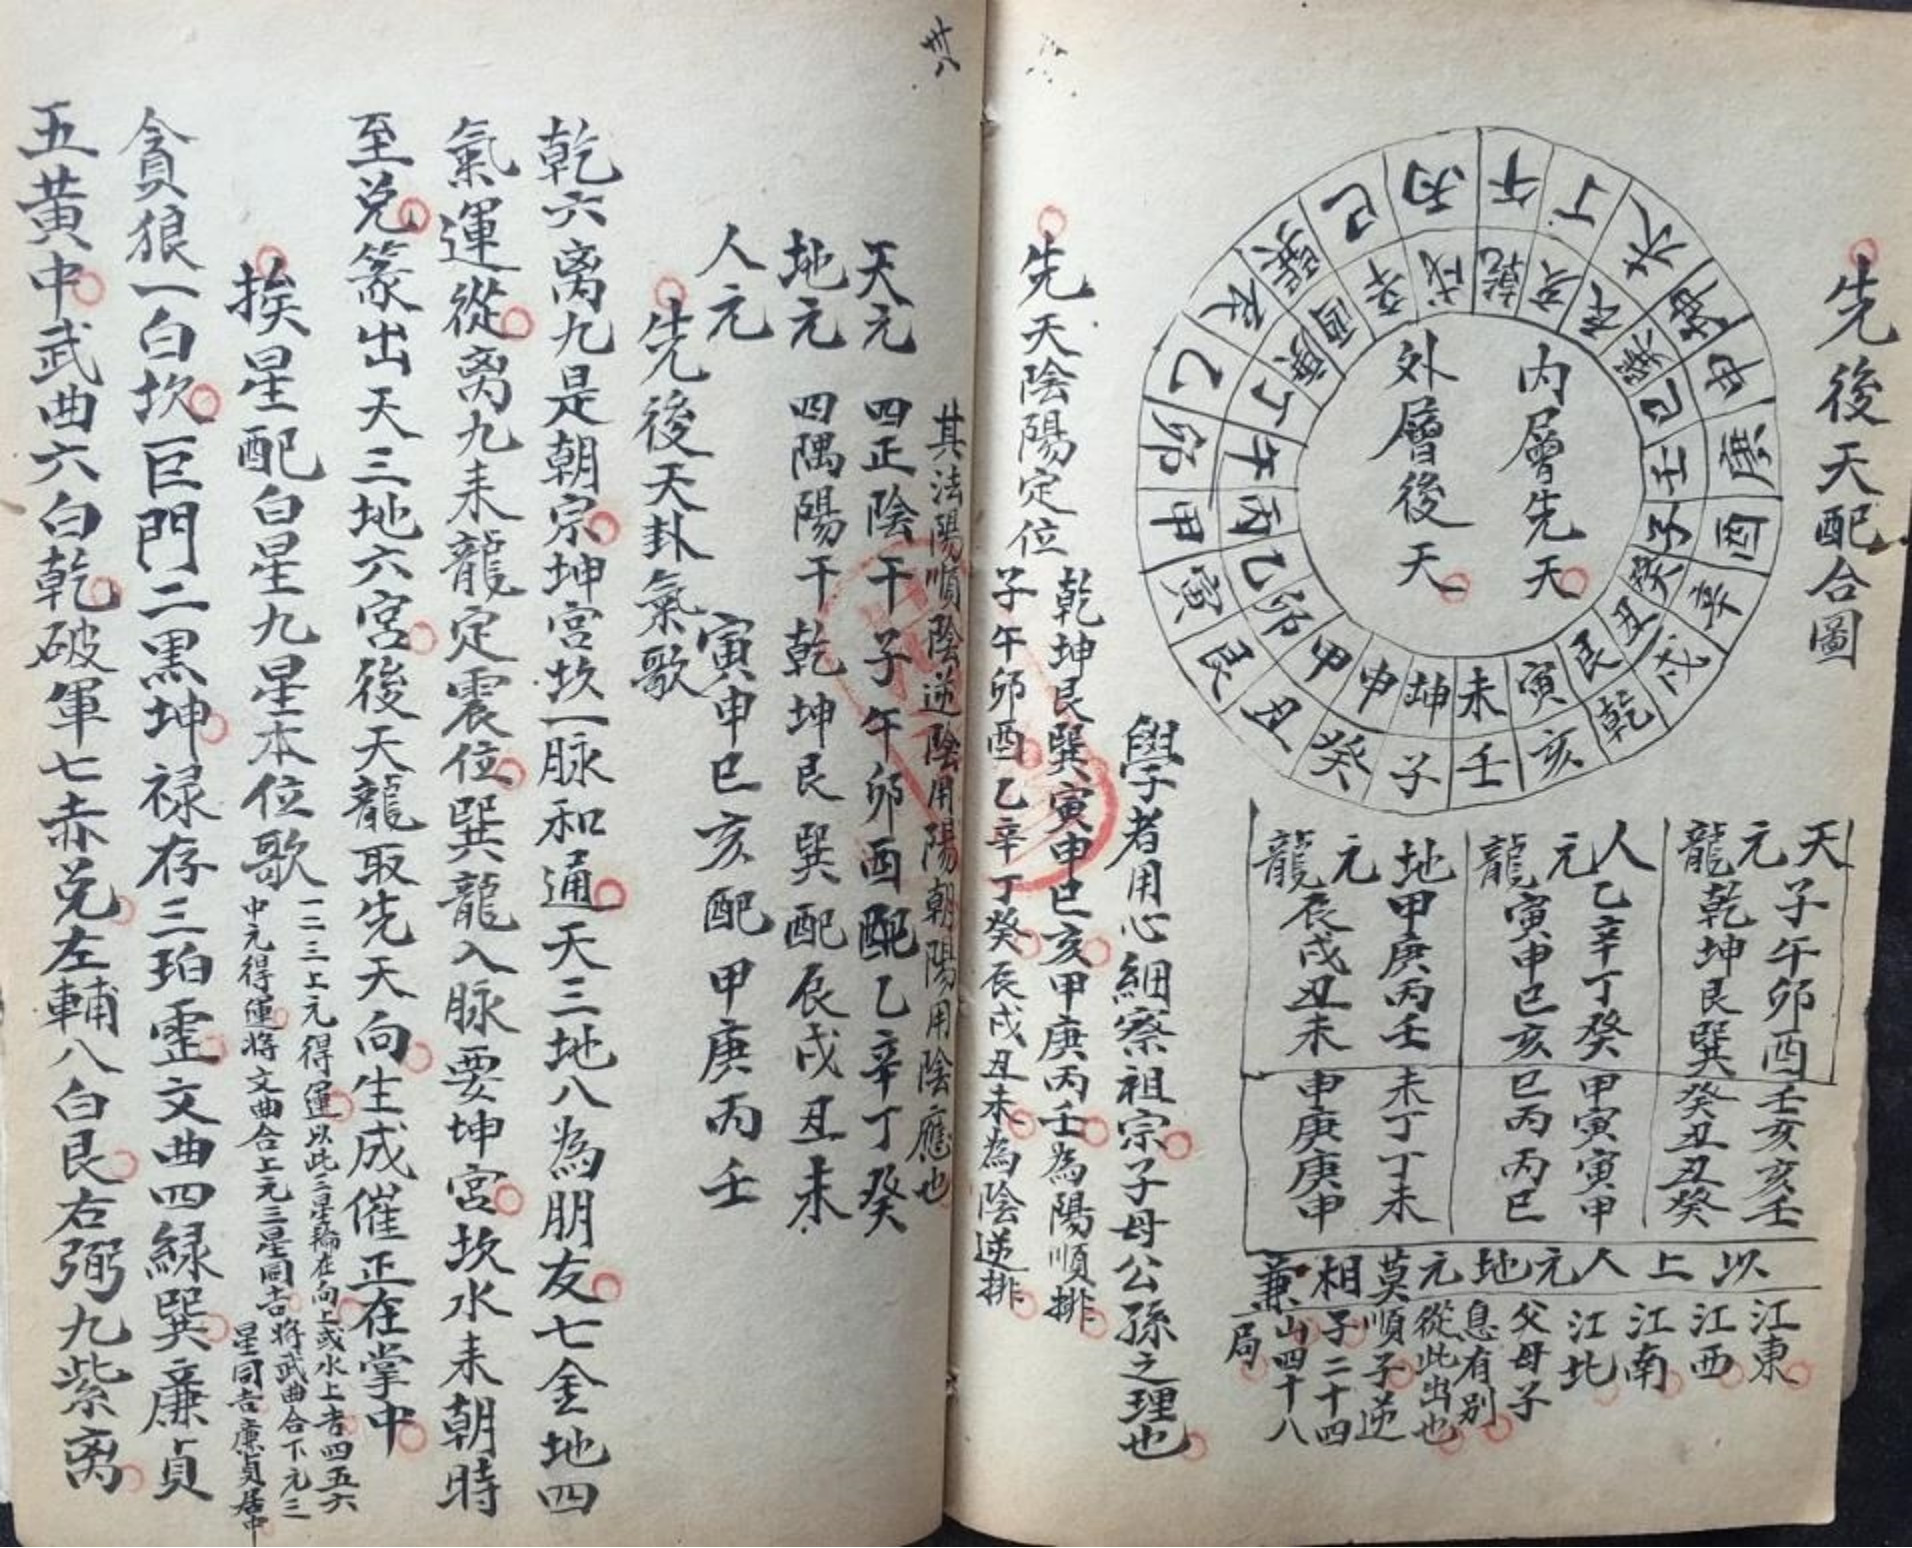 先後天配合圖
内層先天
外層後天
午丁未坤申庚酉辛戌乾亥壬子癸丑艮寅甲卯乙辰巽巳丙
乾亥辰巽巳壬子癸丑艮寅未坤申甲卯乙丙午丁庚酉辛戌
天元龍
子午卯酉
乾坤艮巽
人元龍
乙辛丁癸
寅申巳亥
地元龍
甲庚丙壬
辰戌丑未
壬亥亥壬
癸丑丑癸
甲寅寅甲
巳丙丙巳
未丁丁未
申庚庚申
以上人元地元莫相兼
江東
江西
江南
江北
父母子
息有别
從此出也
順子逆
子二十四
山四十八
局
學者用心細察祖宗子母公孫之理也
先天陰陽定位
乾坤艮巽寅申巳亥甲庚丙壬為陽順排
子午卯酉乙辛丁癸辰戌丑未為陰逆排
其法陽順陰逆陰用陽朝陽用陰應也
天元 四正陰干子午卯酉配乙辛丁癸
地元 四隅陽干乾坤艮巽配辰戌丑未
人元 寅申巳亥配甲庚丙壬
先後天卦氣歌
乾六离九是朝宗坤宫坎一脉和通天三地八為朋友七金地四
氣運從离九耒龍定震位巽龍入脉要坤宫坎水耒朝時
至兑篆出天三地六宫後天龍取先天向生成催正在掌中
挨星配白星九星本位歌
一二三上元得運以此三星輪在向上或水上吉四五六
中元得運将文曲合上元三星同吉将武曲合下元三
星同吉廉貞居中
貪狼一白坎巨門二黑坤禄存三珀震文曲四緑巽廉貞
五黄中武曲六白乾破軍七赤兑左輔八白艮右弼九紫离
卅八